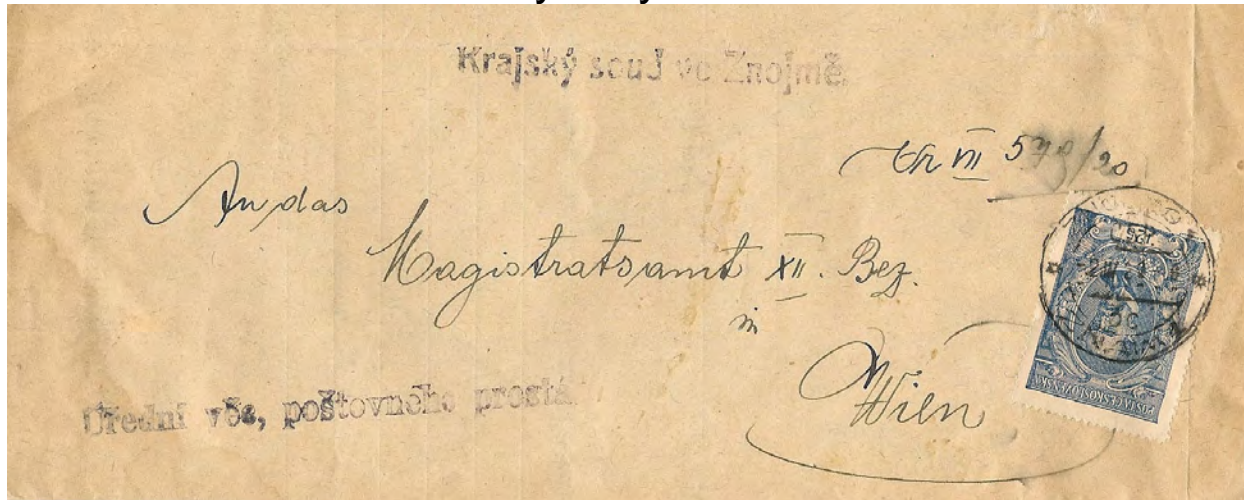 Krajský soud ve Znojmě.
An das
Magistratsamt XII. Bez.
in
Wien
Úřední věc, poštovného prostá
POŠTA ČESKOSLOVENSKÁ